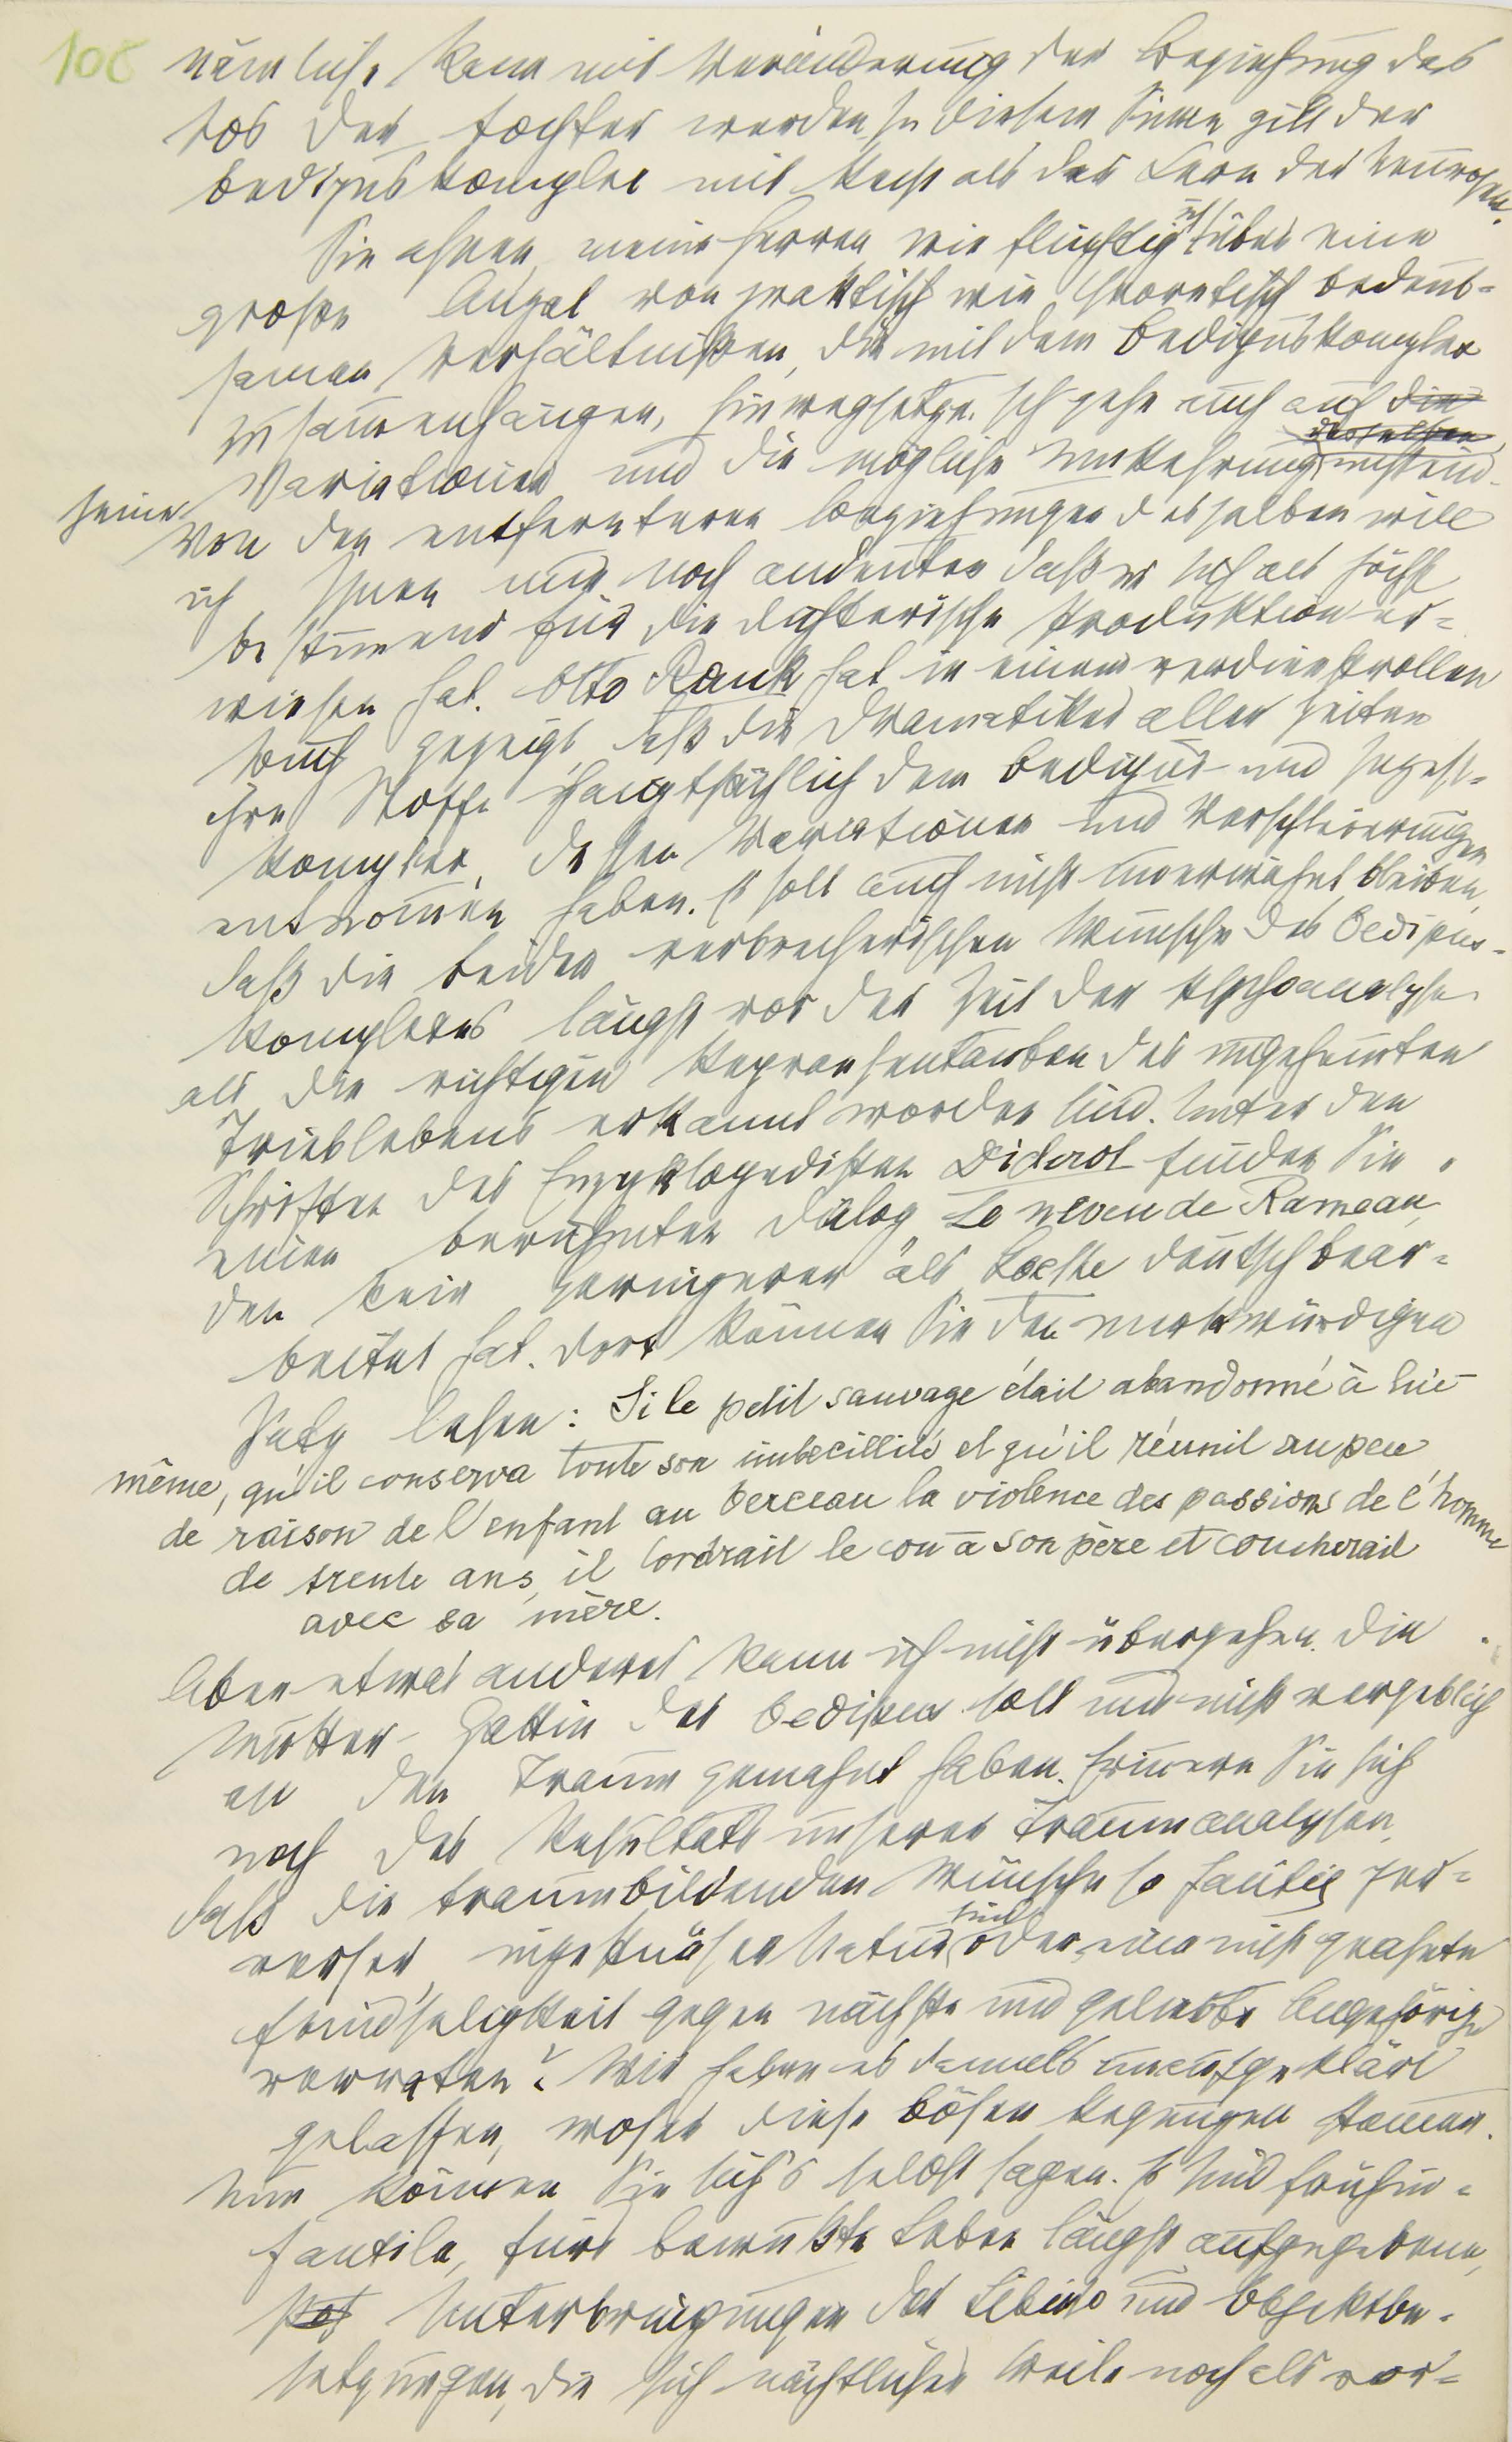 108
nämliche kann mit Veränderung der Beziehung das
Los der Tochter werden. In diesem Sinne gilt der
Oedipuskomplex mit Recht als der Kern der Neurosen.
Sie ahnen, meine Herren, wie flüchtig ich über eine
große Anzal von praktisch wie theoretisch bedeut=
samen Verhältnißen, die mit dem Oedipuskomplex
zusam̄enhängen, hinwegsetze. Ich gehe auch auf die
seine Variationen und die mögliche Umkehrung desselben nicht ein.
Von den entfernteren Beziehungen desselben will
ich Ihnen nur noch andeuten daß er sich als höchst
bestim̄end für die dichterische Produktion er=
wiesen hat. Otto Rank hat in einem verdienstvollen
Buch gezeigt, daß die Dramatiker aller Zeiten
ihre Stoffe hauptsächlich dem Oedipus- und Inzest=
komplex, dessen Variationen und Verschleierungen
entnom̄en haben. Es soll auch nicht unerwähnt bleiben,
daß die beiden verbrecherischen Wünsche des Oedipus=
komplexes längst vor der Zeit der Psychoanalyse
als die richtigen Repraesentanten des ungehem̄ten
Trieblebens erkannt worden sind. Unter den
Schriften des Enzyklopedisten Diderot finden Sie
einen berühmten Dialog, Le neveu de Rameau,
den kein Geringerer als Goethe deutsch bear=
beitet hat. Dort können Sie den merkwürdigen
Satz lesen: Si le petit sauvage était abandonné à lui-
même, qu'il conserva toute son imbecillité et qu'il réunit au peu
de raison de l'enfant au berceau la violence des passions de l'homme
de trente ans, il tordrait le cou à son père et coucherait
avec sa mère.
Aber etwas anderes kann ich nicht übergehen. Die
Mutter-Gattin des Oedipus soll uns nicht vergeblich
an den Traum gemahnt haben. Erinnern Sie sich
noch des Resultats unserer Traumanalysen,
daß die traumbildenden Wünsche so häufig per=
verser, inzestuöser Natur sind oder eine nicht geahnte
Feindseligkeit gegen nächste und geliebte Angehörige
verraten? Wir haben es damals unaufgeklärt
gelassen, woher diese bösen Regungen stam̄en.
Nun können Sie sich's selbst sagen. Es sind frühin=
fantile, fürs bewußte Leben längst aufgegebene,
Unterbringungen der Libido und Objektbe=
setzungen, die sich nächtlicher Weile noch als vor=